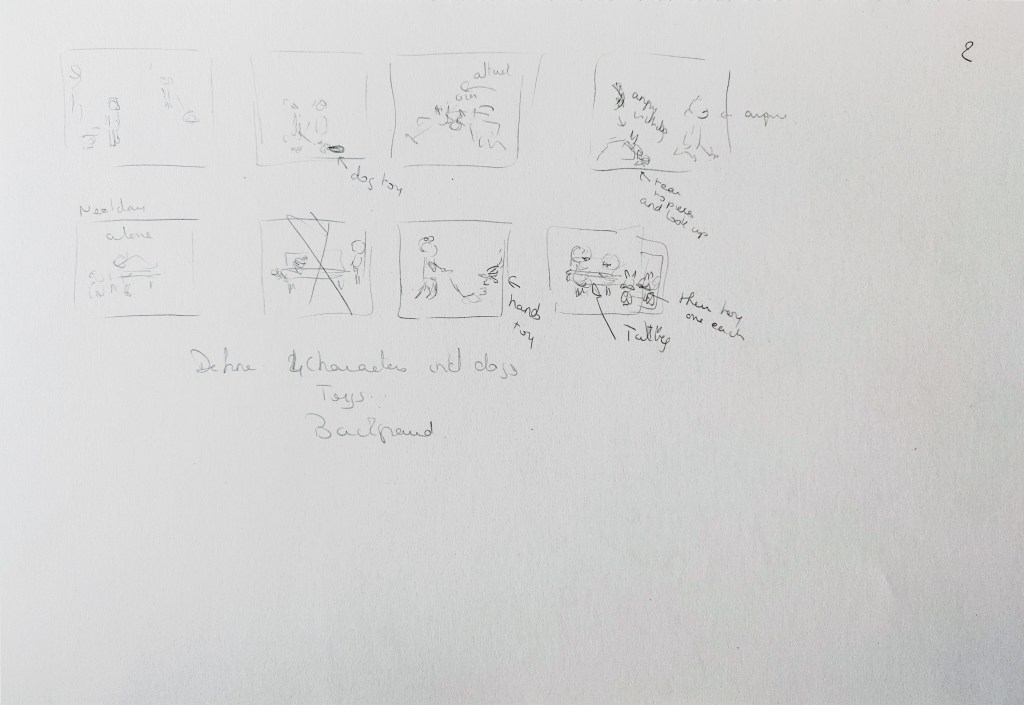 2
dog toy
angry
tear
to pieces
and look up
Next day
alone
hands
toy
Talking
then toy
one each
Define 4 Characters incl dogs
Toys
Background